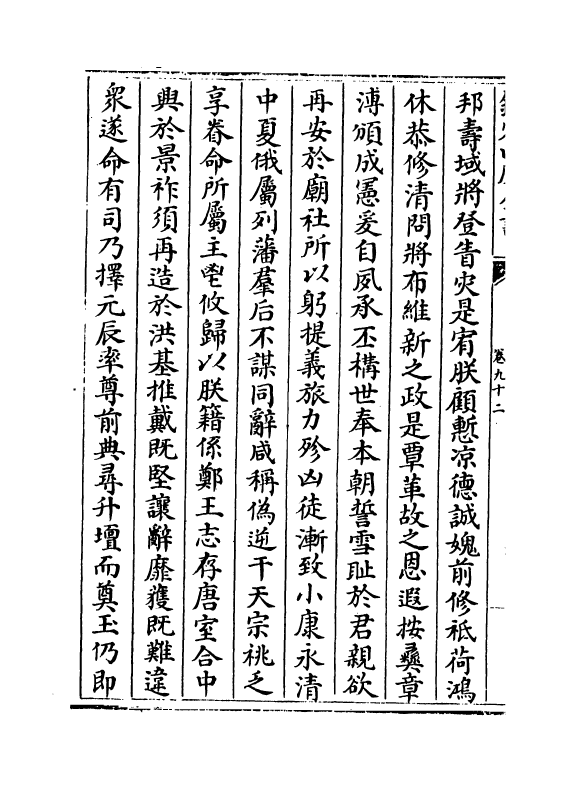 卷九十二
邦壽域將登眚灾是宥朕顧慙凉德誠媿前修祗荷鴻
休恭修清問將布維新之政是覃革故之恩遐按彝章
溥頒成憲爰自夙承丕構世奉本朝誓雪耻於君親欲
再安於廟社所以躬提義旅力殄凶徒漸致小康永清
中夏俄屬列藩羣后不謀同辭咸稱偽逆干天宗祧乏
享眷命所屬主鬯攸歸以朕籍係鄭王志存唐室合中
興於景祚須再造於洪基推戴既堅讓辭靡獲既難違
衆遂命有司乃擇元辰率尊前典尋升壇而奠玉仍即